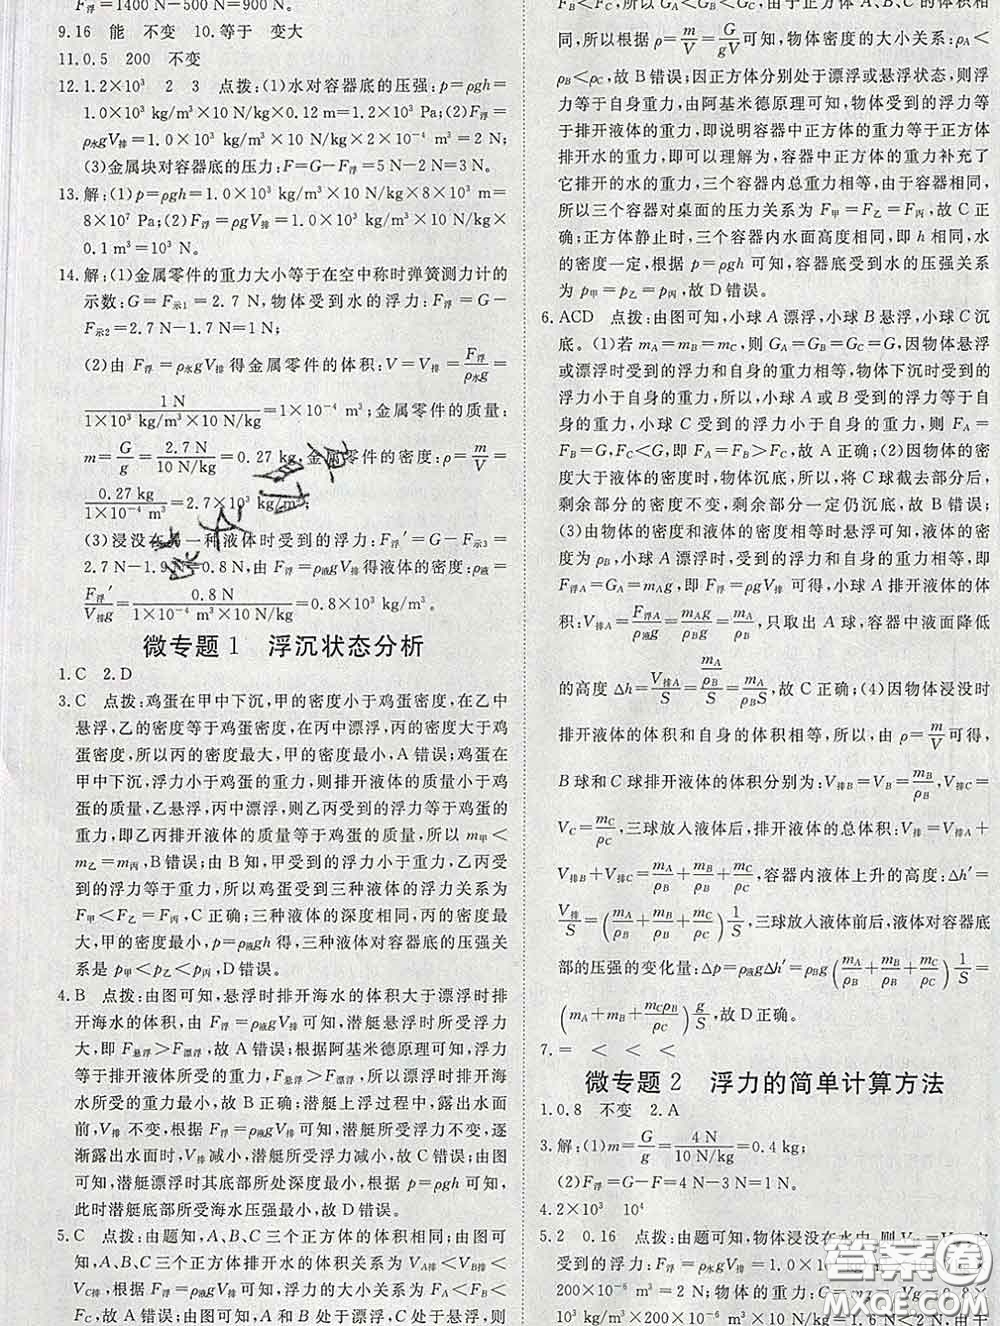 F浮=1400 N-500 N=900 N。
9.16 能 不变 10.等于 变大
11.0.5 200 不变
12.1.2×10³ 2 3 点拨:(1)水对容器底的压强:p=ρgh=
1.0×10³ kg/m³×10 N/kg×0.12 m=1.2×10³ Pa;(2)F浮=
ρ水gV排=1.0×10³ kg/m³×10 N/kg×2×10⁻⁴ m³=2 N;
(3)金属块对容器底的压力:F=G-F浮=5 N-2 N=3 N。
13.解:(1)p=ρgh=1.0×10³ kg/m³×10 N/kg×8×10³ m=
8×10⁷ Pa;(2)F浮=ρgV排=1.0×10³ kg/m³×10 N/kg×
0.1 m³=10³ N。
14.解:(1)金属零件的重力大小等于在空中称时弹簧测力计的
示数:G=F示1=2.7 N,物体受到水的浮力:F浮=G-
F示2=2.7 N-1.7 N=1 N;
(2)由 F浮=ρ水gV排得金属零件的体积:V=V排=F浮/ρ水g=
1 N/(1×10³ kg/m³×10 N/kg)=1×10⁻⁴ m³;金属零件的质量:
m=G/g=2.7 N/(10 N/kg)=0.27 kg,金属零件的密度:ρ=m/V=
0.27 kg/(1×10⁻⁴ m³)=2.7×10³ kg/m³;
(3)浸没在另一种液体时受到的浮力:F浮′=G-F示3=
2.7 N-1.9 N=0.8 N,由 F浮=ρ液gV排得液体的密度:ρ液=
F浮′/V排g=0.8 N/(1×10⁻⁴ m³×10 N/kg)=0.8×10³ kg/m³。
微专题1 浮沉状态分析
1.C 2.D
3.C 点拨:鸡蛋在甲中下沉,甲的密度小于鸡蛋密度,在乙中
悬浮,乙的密度等于鸡蛋密度,在丙中漂浮,丙的密度大于鸡
蛋密度,所以丙的密度最大,甲的密度最小,A错误;鸡蛋在
甲中下沉,浮力小于鸡蛋的重力,则排开液体的质量小于鸡
蛋的质量,乙悬浮,丙中漂浮,则乙丙受到的浮力等于鸡蛋的
重力,即乙丙排开液体的质量等于鸡蛋的质量,所以 m甲<
m乙=m丙,B错误;由B知,甲受到的浮力小于重力,乙丙受
到的浮力等于重力,所以鸡蛋受到三种液体的浮力关系为
F甲<F乙=F丙,C正确;三种液体的深度相同,丙的密度最
大,甲的密度最小,p=ρ液gh得,三种液体对容器底的压强关
系是 p甲<p乙<p丙,D错误。
4.B 点拨:由图可知,悬浮时排开海水的体积大于漂浮时排
开海水的体积,由 F浮=ρ液gV排可知,潜艇悬浮时所受浮力
大,即 F悬浮>F漂浮,故A错误;根据阿基米德原理可知,浮力
等于排开液体所受的重力,F悬浮>F漂浮,所以潜艇悬浮时排开
液体所受的重力大,故B正确;潜艇上浮过程中,露出水面
前,V排 不变,根据 F浮=ρ液gV排可知,潜艇所受浮力不变,逐
渐露出水面时,V排减小,潜艇所受浮力减小,故C错误;由图
可知,潜艇漂浮时其底部所处深度最小,根据 p=ρgh可知,
此时潜艇底部所受海水压强最小,故D错误。
5.C 点拨:由题知,A、B、C三个正方体的体积相同;由图可
知,A、B、C三个正方体排开水的体积关系为 V排A<V排B<
V排C,则可知正方体受到的浮力的大小关系为 FA<FB<
FC,故A错误;由图可知,A和B处于漂浮,C处于悬浮,则
FB<FC,所以 GA<GB<GC;由于正方体A、B、C的体积相
同,所以根据 ρ=m/V=G/gV 可知,物体密度的大小关系:ρA<
ρB<ρC,故B错误;因正方体分别处于漂浮或悬浮状态,则浮
力等于自身重力,由阿基米德原理可知,物体受到的浮力等
于排开液体的重力,即说明容器中正方体的重力等于正方体
排开水的重力,即可以理解为,容器中正方体的重力补充了
它排开的水的重力,三个容器内总重力相等,由于容器相同,
所以三个容器对桌面的压力关系为 F甲=F乙=F丙,故C正
确;正方体静止时,三个容器内水面高度相同,即h相同,水的
密度一定,根据 p=ρgh 可知,容器底部受到水的压强关系
为 p甲=p乙=p丙,故D错误。
6.ACD 点拨:由图可知,小球A漂浮,小球B悬浮,小球C沉
底。(1)若 mA=mB=mC,则 GA=GB=GC=G,因物体悬浮
或漂浮时受到的浮力和自身的重力相等,物体下沉时受到浮
力小于自身的重力,所以,小球A或B受到的浮力等于自身
的重力,小球C受到的浮力小于自身的重力,则 FA=
FB=G,FC<G,即 FA=FB>FC,故A正确;(2)因物体的密
度大于液体的密度时,物体沉底,所以,将C球截去部分后,
剩余部分的密度不变,剩余部分一定仍沉底,故B错误;
(3)由物体的密度和液体的密度相等时悬浮可知,液体的密
度为 ρB,小球A漂浮时,受到的浮力和自身的重力相等,即
F浮A=GA=mAg,由 F浮=ρgV排 可得,小球A排开液体的体
积:V排A=F浮A/ρ液g=mAg/ρBg=mA/ρB,只取出A球,容器中液面降低
的高度 Δh=V排A/S=(mA/ρB)/S=mA/ρBS,故C正确;(4)因物体浸没时
排开液体的体积和自身的体积相等,所以,由 ρ=m/V可得,
B球和C球排开液体的体积分别为:V排B=VB=mB/ρB,V排C=
VC=mC/ρC,三球放入液体后,排开液体的总体积:V排=V排A+
V排B+V排C=mA/ρB+mB/ρB+mC/ρC,容器内液体上升的高度:Δh′=
V排/S=(mA/ρB+mB/ρB+mC/ρC)1/S,三球放入液体前后,液体对容器底
部的压强的变化量:Δp=ρ液gΔh′=ρBg(mA/ρB+mB/ρB+mC/ρC)1/S=
(mA+mB+mCρB/ρC)g/S,故D正确。
7.= < < <
微专题2 浮力的简单计算方法
1.0.8 不变 2.A
3.解:(1)m=G/g=4 N/(10 N/kg)=0.4 kg;
(2)F浮=G-F=4 N-3 N=1 N。
4.2×10³ 10⁴
5.2 0.16 点拨:由题可知,物体浸没在水中,则
受到的浮力:F浮=ρ水gV排=1.0×10³
200×10⁻⁶ m³=2 N;物体的重力:G=mg=
kg/m³×200×10⁻⁶ m³×10 N/kg=1.6 N<2 N,由于
答案圈
MXQE.COM